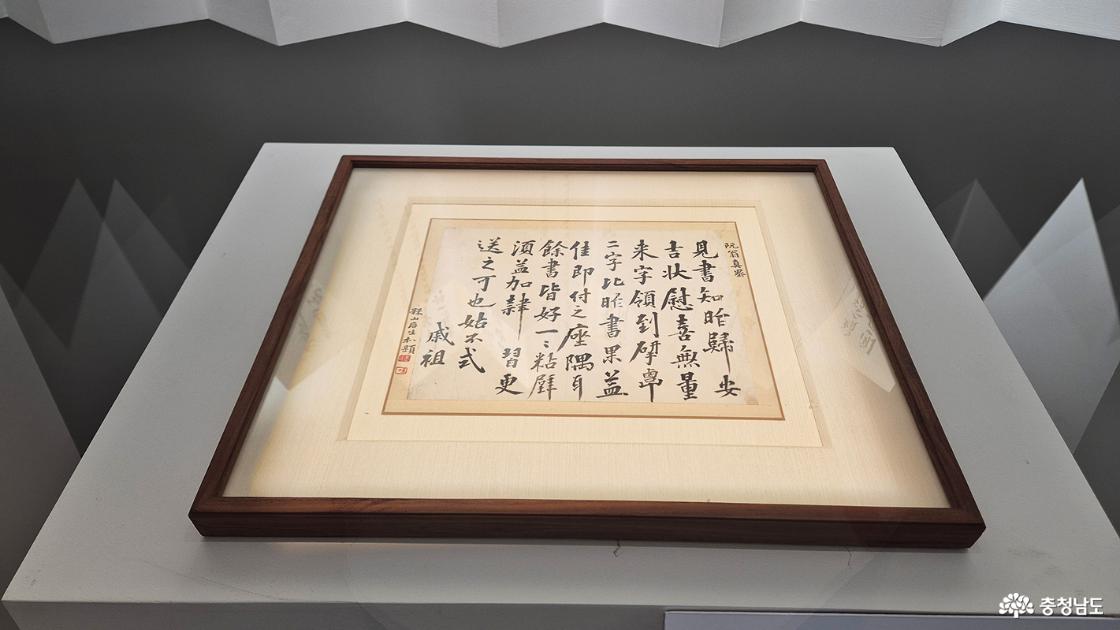 阮翁真蹟
見書知昨歸 安
吉狀慰喜無量
来字領到硏覃
二字比昨書果益
佳即付之座隅耳
餘書皆好一〻粘壁
須益加隷 習更
送之可也姑不式
戚祖
충청남도